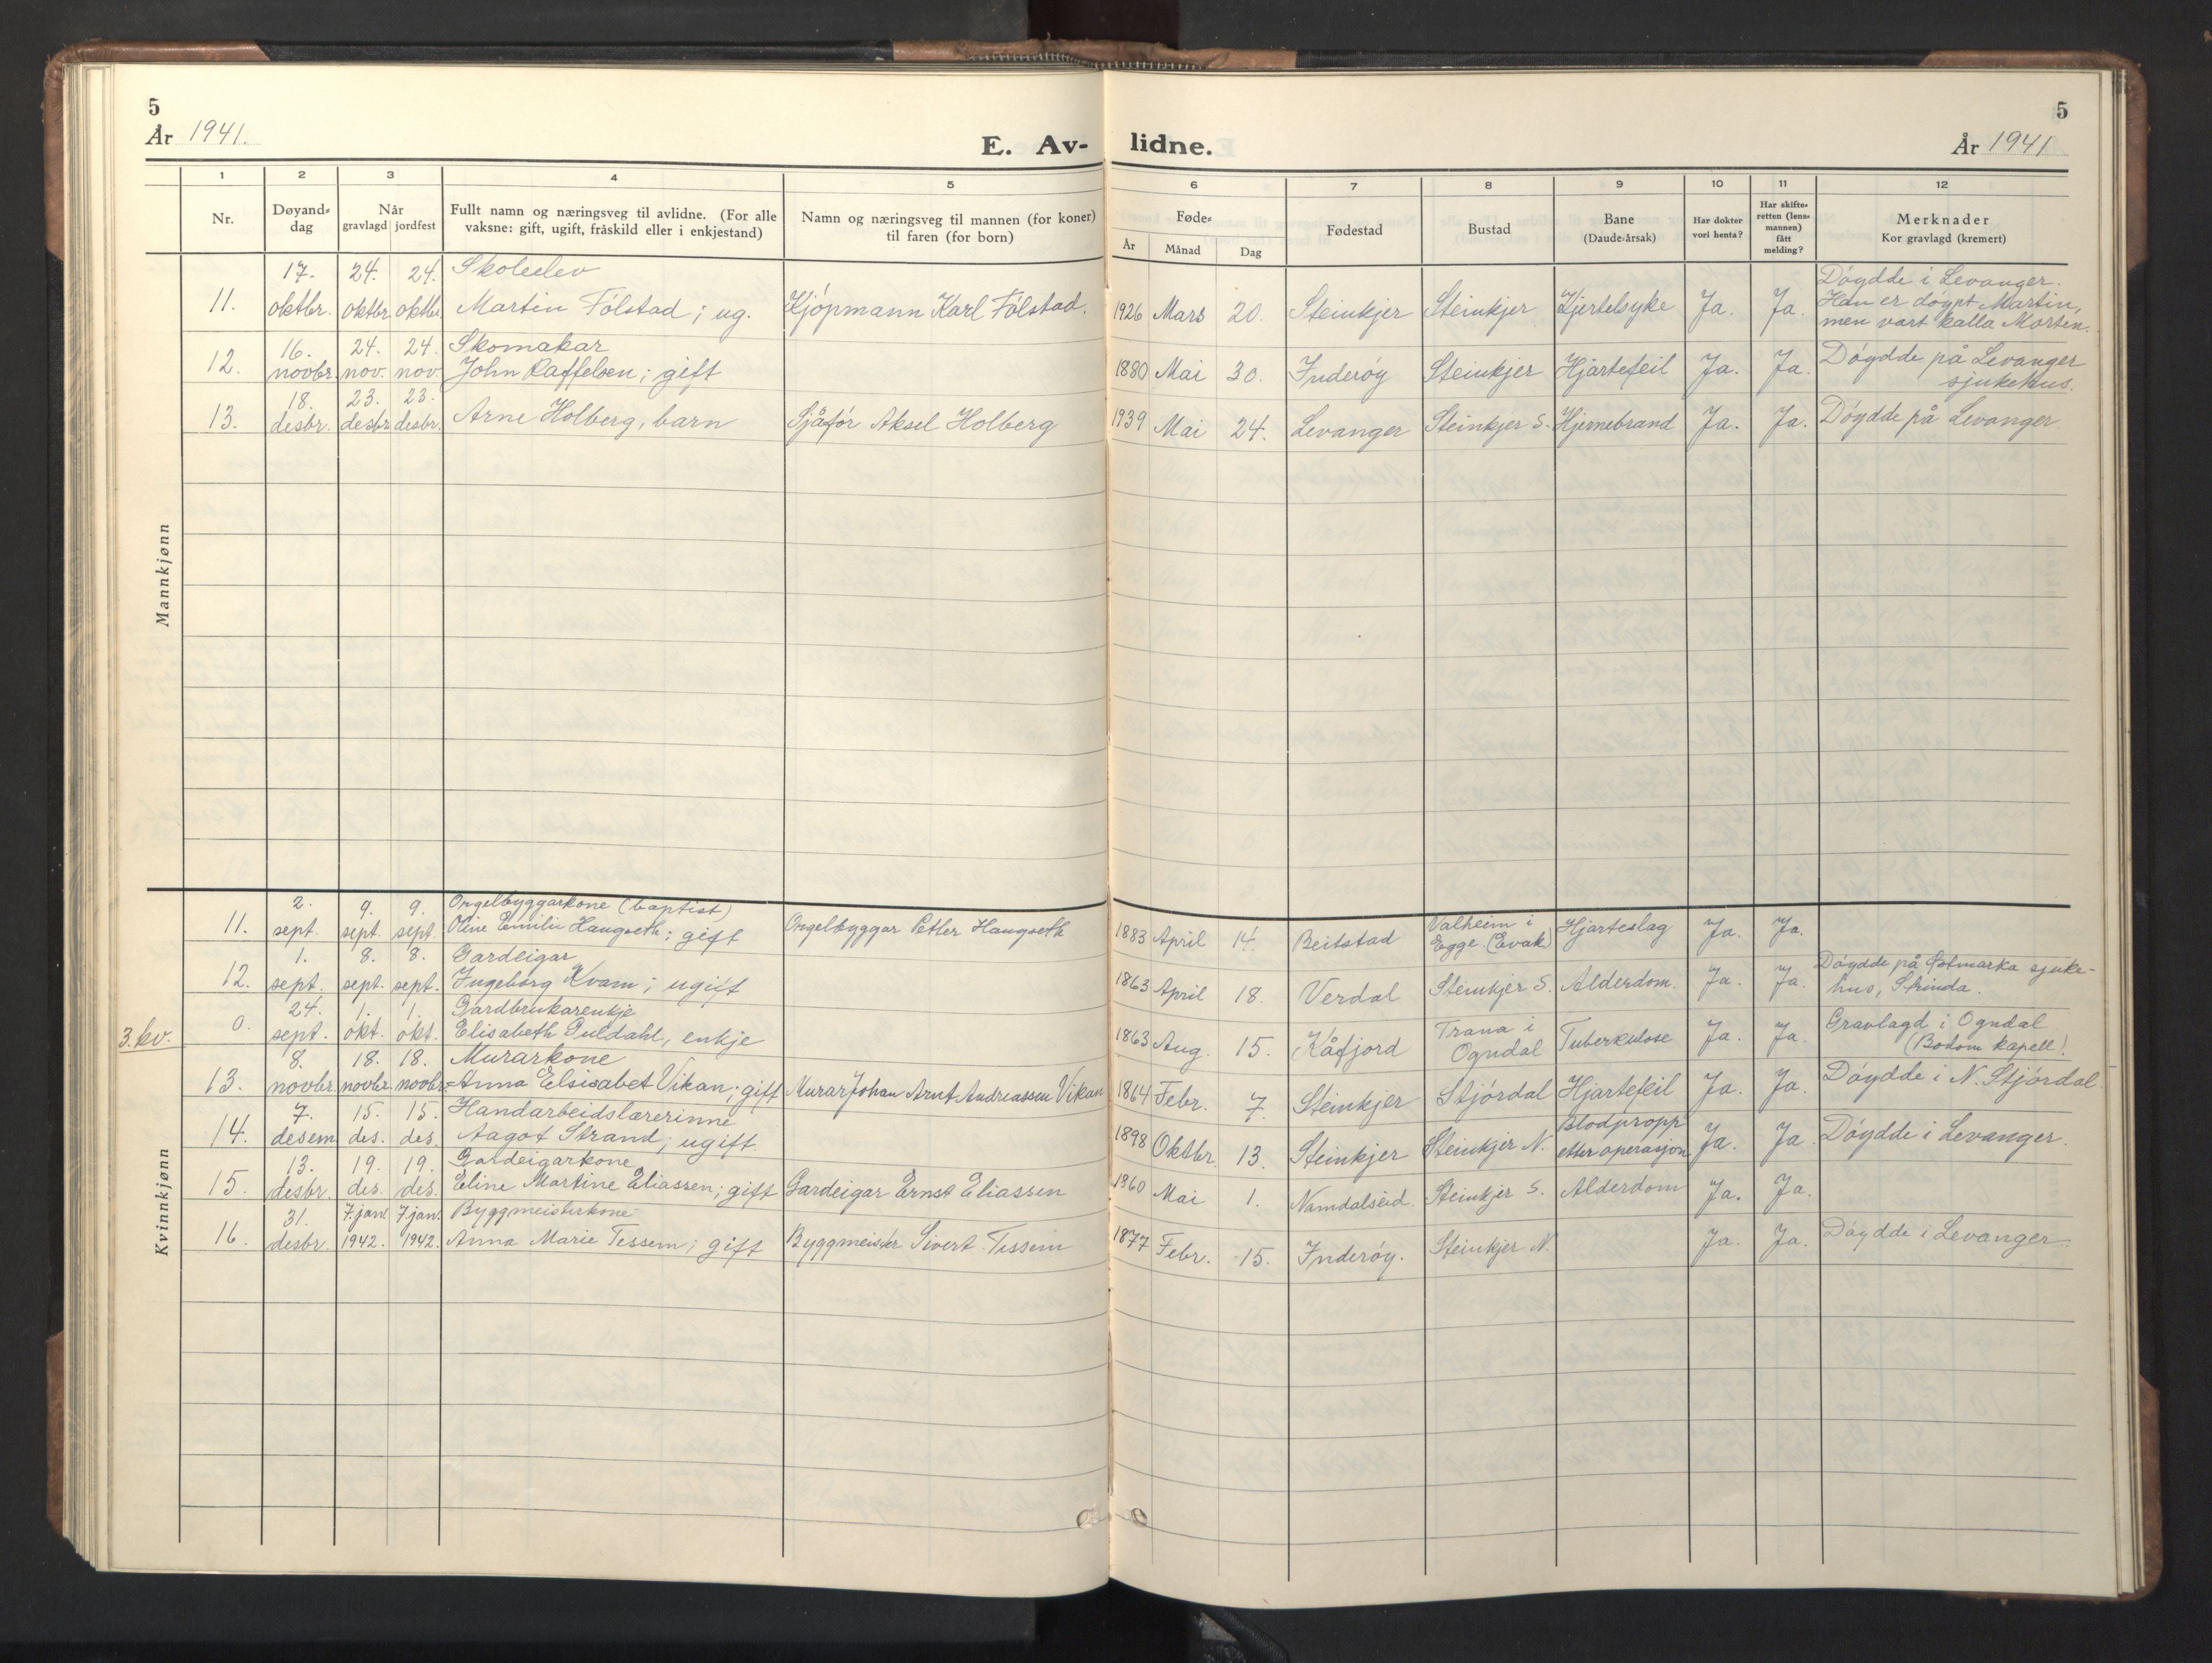 5
År 1941.
E. Av-
lidne.
5
År 1941
1 2 3 4 5 6 7 8 9 10 11 12
Nr.
Døyand-
dag
Når
gravlagd jordfest
Fullt namn og næringsveg til avlidne. (For alle
vaksne: gift, ugift, fråskild eller i enkjestand)
Namn og næringsveg til mannen (for koner)
til faren (for born)
Føde-
År Månad Dag
Fødestad
Bustad
Bane
(Daude-årsak)
Har dokter
vori henta?
Har skifte-
retten (lens-
mannen)
fått
melding?
Merknader
Kor gravlagd (kremert)
Mannkjønn
17. 24. 24. Skoleelev Døydde i Levanger.
11. oktbr. oktbr oktbr Martin Følstad; ug. Kjøpmann Karl Følstad. 1926 Mars 20. Steinkjer Steinkjer Kjertelsyke Ja. Ja. Han er døypt Martin,
men vart kalla Morten.
16. 24. 24. Skomakar
12. novbr. nov. nov. John Raffelsen; gift 1880 Mai 30. Inderøy Steinkjer Hjartefeil Ja. Ja. Døydde på Levanger
sjukehus.
18. 23. 23.
13. desbr. desbr desbr. Arne Holberg, barn Sjåfør Aksel Holberg 1939 Mai 24. Levanger Steinkjer S. Hjernebrand Ja. Ja. Døydde på Levanger
Kvinnkjønn
2. 9. 9. Orgelbyggarkone (baptist) Valheim i
11. sept. sept. sept. Oline Emilie Haugseth; gift Orgelbyggar Petter Haugseth 1883 April 14. Beitstad Egge (Evak) Hjarteslag Ja. Ja.
1. 8. 8. Gardeigar Døydde på Østmarka sjuke-
12. sept. sept. sept. Ingeborg Kvam; ugift 1863 April 18. Verdal Steinkjer S. Alderdom. Ja. Ja. hus, Strinda.
24. 1. 1. Gardbrukarenkje Trana i Gravlagd i Ogndal
3. kv. 0. sept. okt. okt. Elisabeth Guldahl, enkje 1863 Aug. 15. Kåfjord Ogndal Tuberkulose Ja. Ja. (Bodom kapell).
8. 18. 18. Murarkone
13. novbr. novbr. novbr. Anna Elsisabet Vikan; gift Murar Johan Arnt Andreassen Vikan 1864 Febr. 7. Steinkjer Stjørdal Hjartefeil Ja. Ja. Døydde i N. Stjørdal.
7. 15. 15. Handarbeidslærerinne Blodpropp
14. desem. des. des. Aagot Strand; ugift. 1898 Oktbr. 13. Steinkjer Steinkjer N. etter operasjon Ja. Ja. Døydde i Levanger.
13. 19. 19. Gardeigarkone
15. desbr. des. des. Eline Martine Eliassen; gift Gardeigar Ernst Eliassen 1860 Mai 1. Namdalseid. Steinkjer S. Alderdom Ja. Ja.
31. 7. jan. 7 jan. Byggmeisterkone
16. desbr. 1942. 1942. Anna Marie Tessem; gift Byggmeister Sivert Tessem 1877 Febr. 15. Inderøy. Steinkjer N. Ja. Ja. Døydde i Levanger.